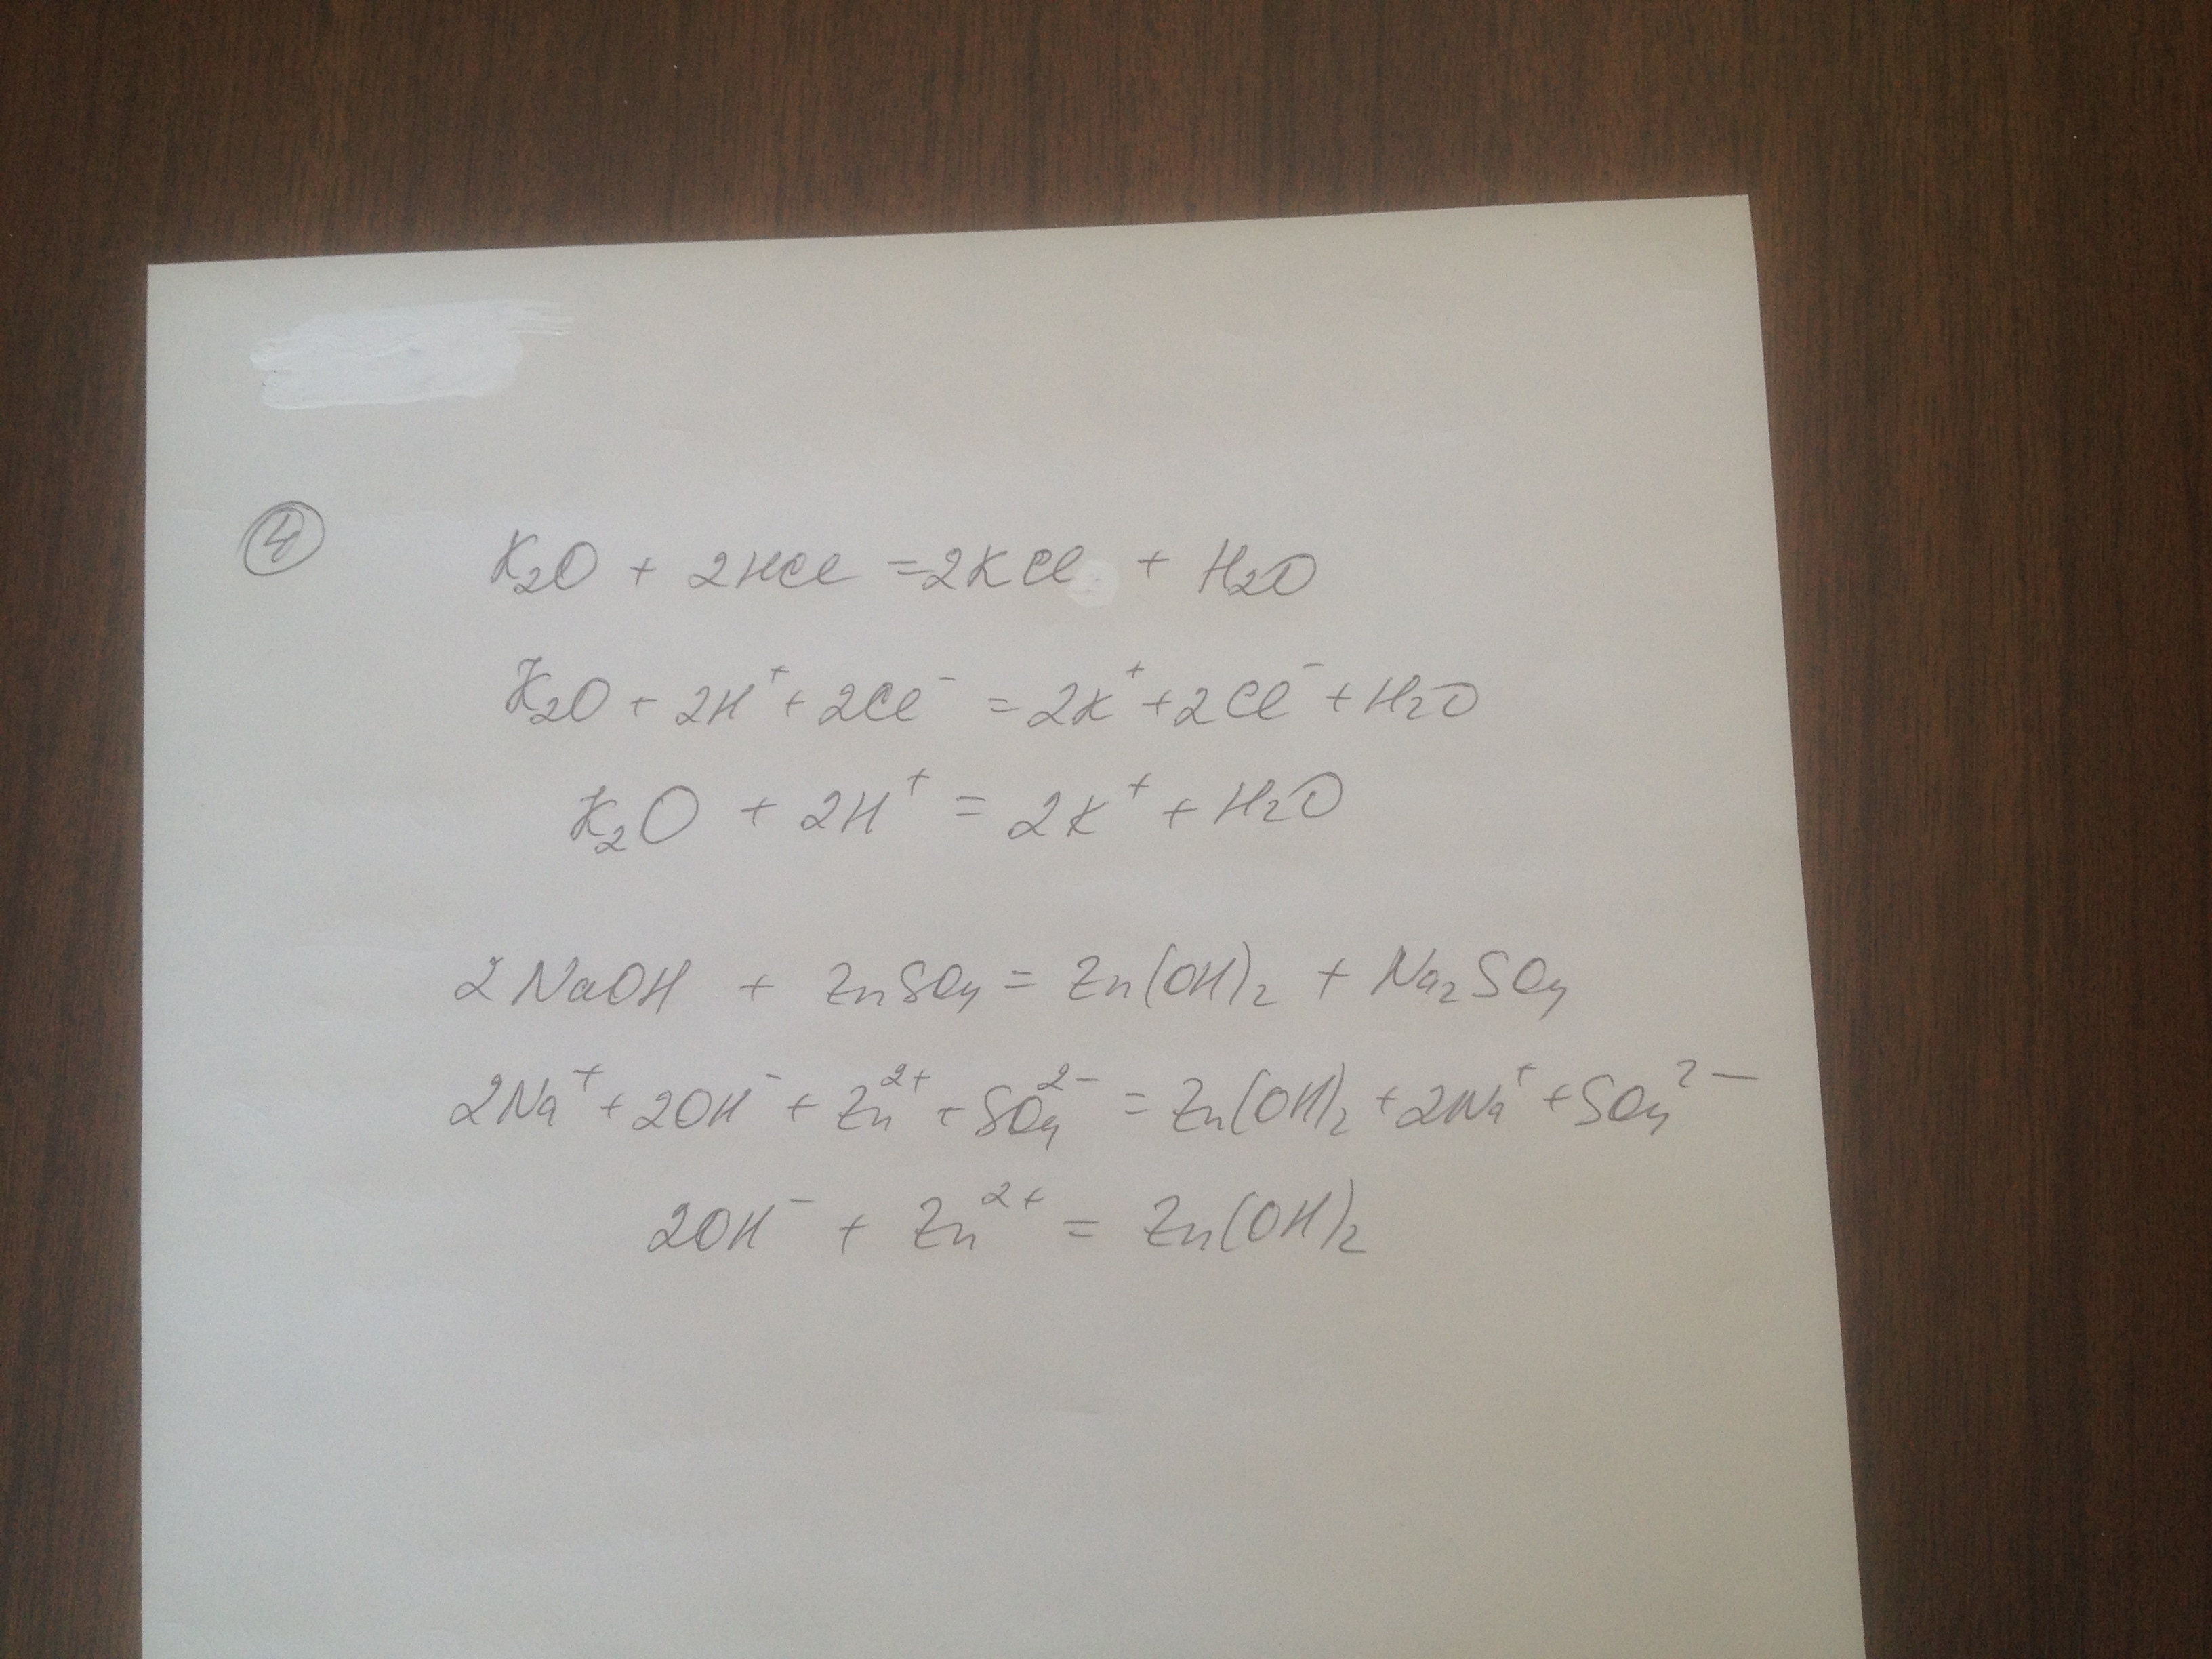 ④
K₂O + 2HCl = 2KCl + H₂O
K₂O + 2H⁺ + 2Cl⁻ = 2K⁺ + 2Cl⁻ + H₂O
K₂O + 2H⁺ = 2K⁺ + H₂O
2NaOH + ZnSO₄ = Zn(OH)₂ + Na₂SO₄
2Na⁺ + 2OH⁻ + Zn²⁺ + SO₄²⁻ = Zn(OH)₂ + 2Na⁺ + SO₄²⁻
2OH⁻ + Zn²⁺ = Zn(OH)₂